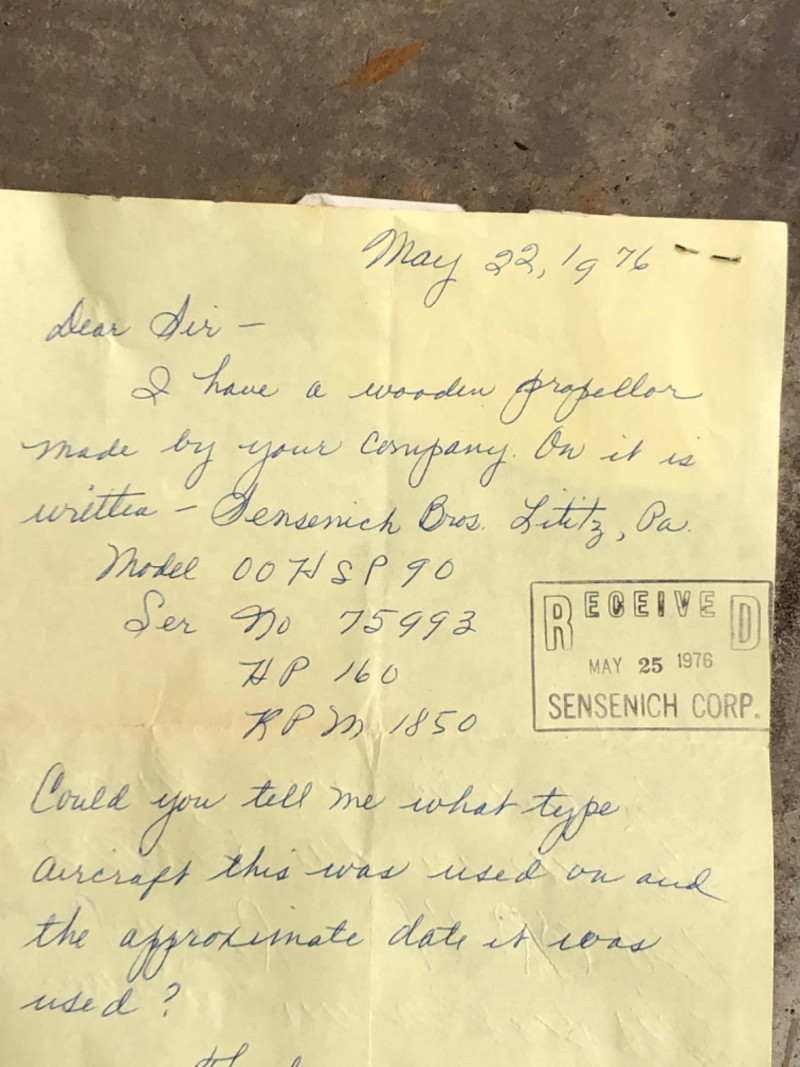 May 22, 1976
Dear Sir -
I have a wooden propellor
made by your company. On it is
written - Sensenich Bros. Lititz, Pa.
Model 00HSP90
Ser No 75993
HP 160
RPM 1850
RECEIVED
MAY 25 1976
SENSENICH CORP.
Could you tell me what type
aircraft this was used on and
the approximate date it was
used?